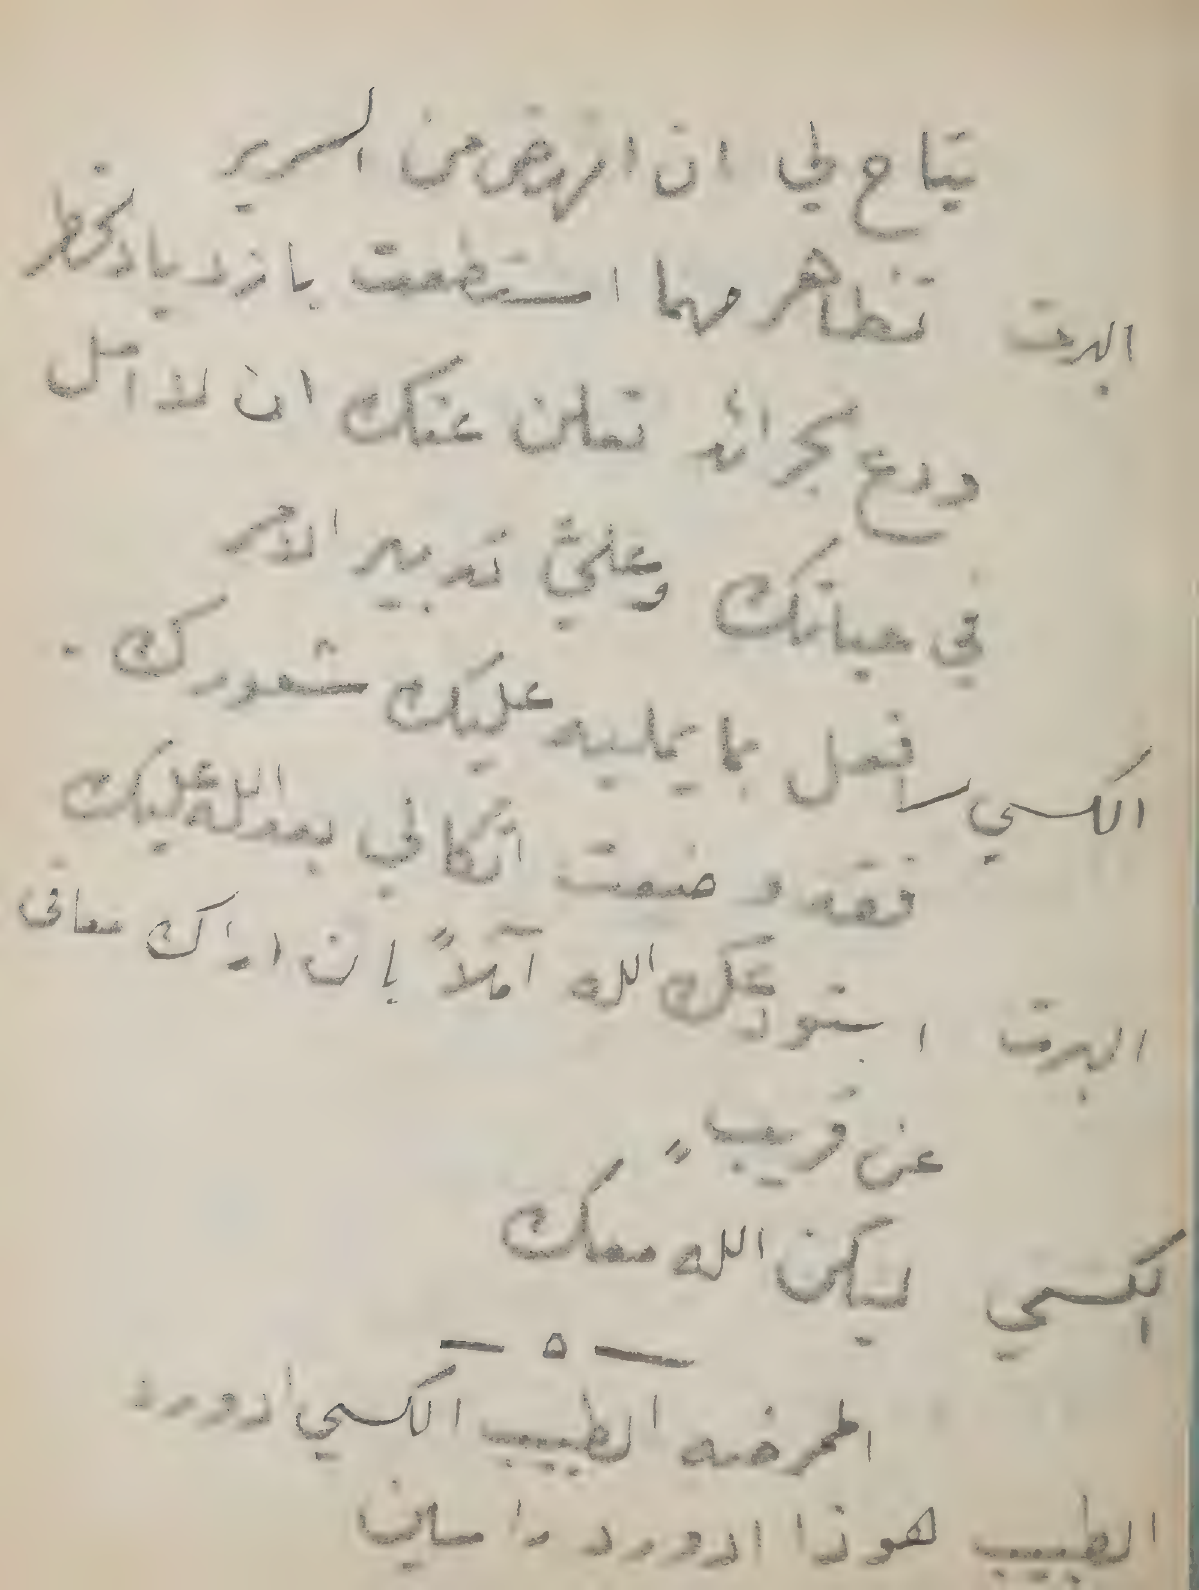 يتاح لي ان انهض من السرير
البرت تظاهر مهما استطعت بازدياد الخطر
ودع الجرائد تعلن عنك ان لا امل
في حياتك وعليّ تدبير الامر
الكسي افعل بما يمليه عليك شعورك .
فقد وضعت اتكالي بعد الله عليك
البرت استودعك الله آملاً بان اراك معافى
عن قريب
الكسي ليكن الله معك
— ٥ —
الممرضه الطبيب الكسي ادورد
الطبيب هوذا ادورد راسين